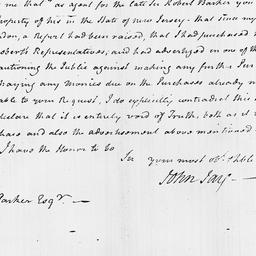 me that as agent for the late Sr Robert Barker you
Property of his in the State of new Jersey - that since my
don, a Report had been raised, that I had purchased
Robert's Representatives, and had advertized in one of the
autioning the Public against making any further Pur
Paying any Monies due on the Purchases already
able to your Request, I do explicitly contradict this
declare that it is entirely void of Truth, both as it
chase and also the advertisement above mentioned
I have the Honor to be
Sir your most obt. & hble
John Jay —
Parker Esqr. —